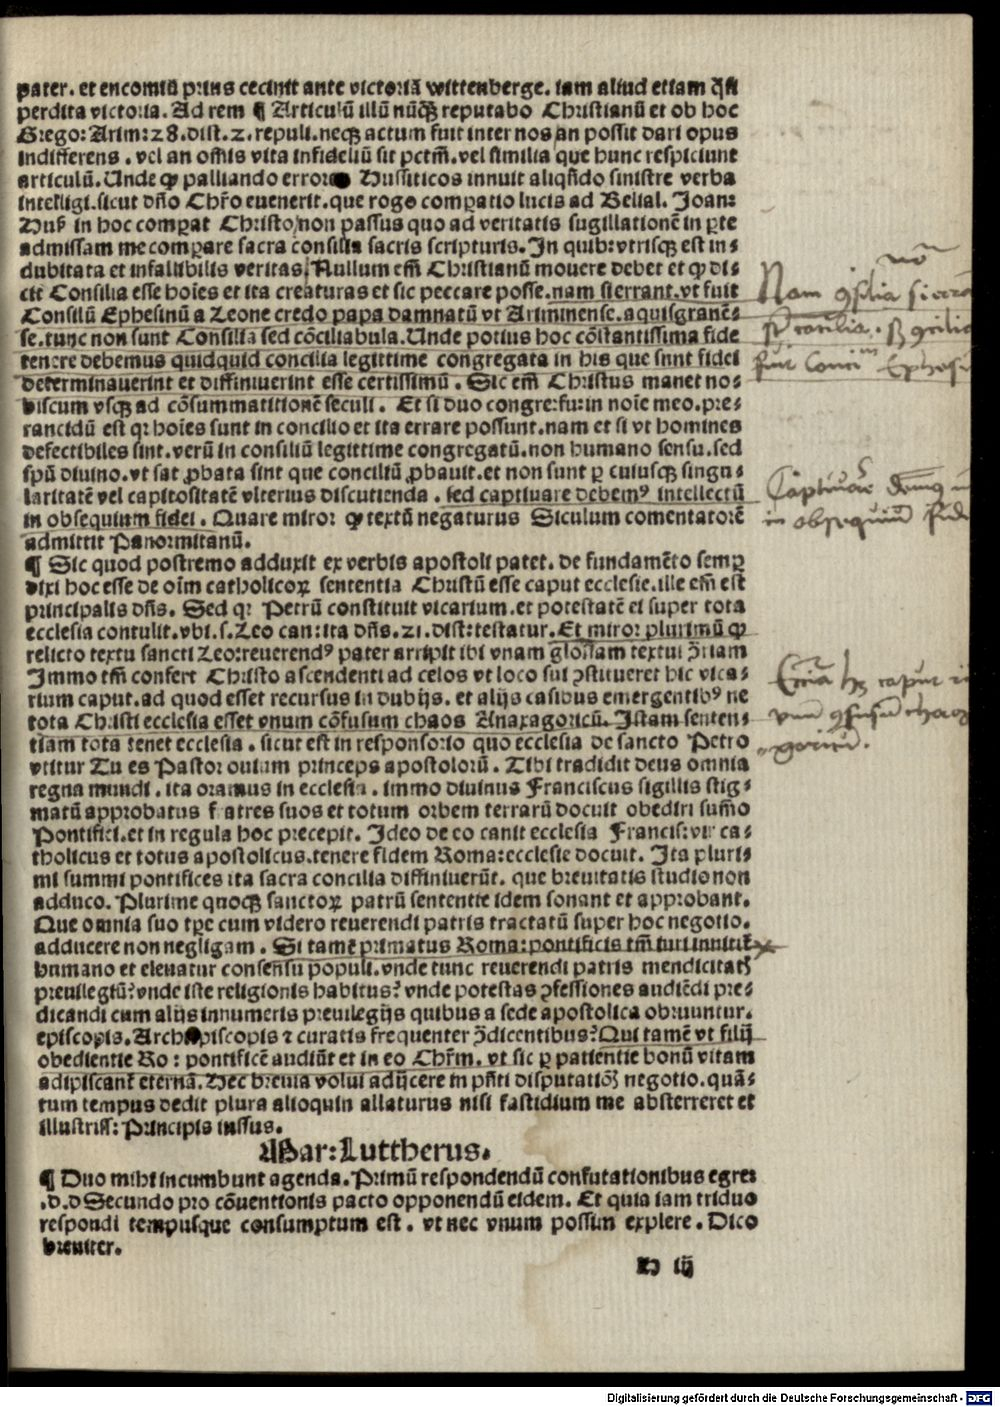 pater. et encomiū prius cecinit ante victoriā wittenberge. iam aliud etiam q̄si
perdita victoria. Ad rem ¶ Articulū illū nūq̄ꝫ reputabo Christianū et ob hoc
Grego: Arim: 28. dist. 2. repuli. neqꝫ actum fuit inter nos an possit dari opus
indifferens. vel an om̄is vita infideliū sit pctm̄. vel similia que hunc respiciunt
articulū. Unde ꝙ palliando Hussiticos innuit aliqn̄do sinistre verba
intelligi. sicut dn̄o Chr̄o euenerit. que rogo comꝑatio lucis ad Belial. Joan:
Husß in hoc comꝑat Christo, non passus quo ad veritatis sugillationē in ꝑte
admissam me comꝑare sacra consilia sacris scripturis. In quibꝰ vtrisqꝫ est in⸗
dubitata et infalibilis veritas, Nullum em̄ Christianū mouere debet et ꝙ di⸗
cit Consilia esse hoīes et ita creaturas et sic peccare posse. nam si errant. vt fuit
Consiliū Ephesinū a Leone credo papa damnatū vt Ariminense. aquisgranē⸗
se. tunc non sunt Consilia sed cōciliabula. Unde potius hoc cōstantissima fide
tenere debemus quidquid concilia legittime congregata in his que sunt fidei
determinauerint et diffiniuerint esse certissimū. Sic em̄ Christus manet no⸗
biscum vsqꝫ ad cōsummatitionē seculi. Et si duo congre: fu: in noīe meo. pre⸗
rancidū est qꝛ hoīes sunt in concilio et ita errare possunt. nam et si vt homines
defectibiles sint. verū in consiliū legittime congregatū. non humano sensu. sed
spū diuino. vt sat ꝓbata sint que conciliū ꝓbauit. et non sunt ꝑ cuiusqꝫ singu⸗
laritatē vel capitositatē vlterius discutienda. sed captiuare debemꝰ intellectū
in obsequium fidei. Quare miror ꝙ textū negaturus Siculum comentatorē
admittit Panormitanū.
¶ Sic quod postremo adduxit ex verbis apostoli patet. de fundamēto semꝑ
dixi hoc esse de oīm catholicoꝝ sententia Christū esse caput ecclesie. ille em̄ est
principalis dn̄s. Sed qꝛ Petrū constituit vicarium. et potestatē ei super tota
ecclesia contulit. vbi. s. Leo can: ita dn̄s. 21. dist: testatur. Et miror plurimū ꝙ
relicto textu sancti Leo: reuerendꝰ pater arripit ibi vnam glossam textui ꝯ̄riam
Immo tm̄ confert Christo ascendenti ad celos vt loco sui ꝯstitueret hic vica⸗
rium caput. ad quod esset recursus in dubijs. et alijs casibus emergentibꝰ ne
tota Christi ecclesia esset vnum cōfusum chaos Anaxagoricū. Istam senten⸗
tiam tota tenet ecclesia. sicut est in responsorio quo ecclesia de sancto Petro
vtitur Tu es Pastor ouium princeps apostolorū. Tibi tradidit deus omnia
regna mundi. ita oramus in ecclesia. immo diuinus Franciscus sigillis stig⸗
matū approbatus fratres suos et totum orbem terrarū docuit obediri summo
Pontifici. et in regula hoc precepit. Ideo de eo canit ecclesia Francis: vir ca⸗
tholicus et totus apostolicus. tenere fidem Roma: ecclesie docuit. Ita pluri⸗
mi summi pontifices ita sacra concilia diffiniuerūt. que breuitatis studio non
adduco. Plurime quoqꝫ sanctoꝝ patrū sententie idem sonant et approbant.
Que omnia suo tꝑe cum videro reuerendi patris tractatū super hoc negotio.
adducere non negligam. Si tamē primatus Roma: pontificis tm̄ iuri innitit̄
humano et eleuatur consensu populi. vnde tunc reuerendi patris mendicitatꝭ
preuilegiū? vnde iste religionis habitus? vnde potestas ꝯfessiones audiēdi pre⸗
dicandi cum alijs innumeris preuilegijs quibus a sede apostolica obruuntur.
episcopis. Archiepiscopis ⁊ curatis frequenter ꝯ̄dicentibus? Qui tamē vt filij
obedientie Ro: pontificē audiūt et in eo Chr̄m. vt sic ꝑ patientie bonū vitam
adipiscant̄ eternā. Hec breuia volui adijcere in pn̄ti disputatiōꝭ negotio. quā⸗
tum tempus dedit plura alioquin allaturus nisi fastidium me absterreret et
illustriss: Principis iussus.
Mar: Luttherus.
¶ Duo mihi incumbunt agenda. Primū respondendū confutationibus egre:
.d. d Secundo pro cōuentionis pacto opponendū eidem. Et quia iam triduo
respondi tempusque consumptum est. vt nec vnum possim explere. Dico
breuiter.
iij
Nam ꝯsilia si
Captiuare
in obsequiū fidei
caput
vnū ꝯfusū chaos
goricū.
Digitalisierung gefördert durch die Deutsche Forschungsgemeinschaft - DFG